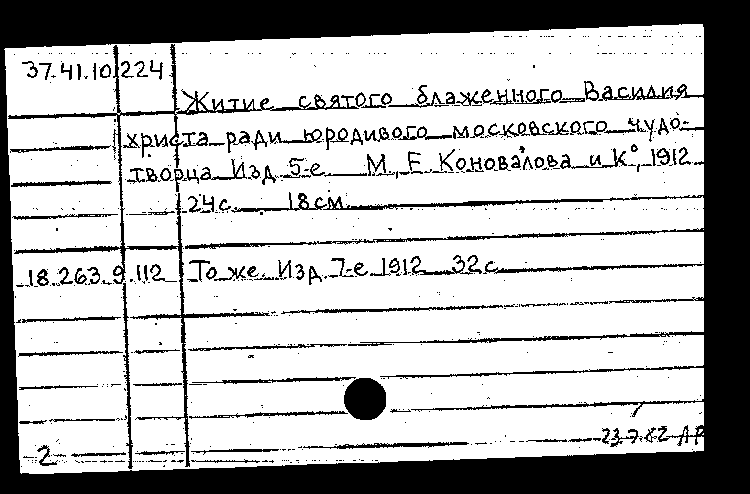 37.41.10.224
Житие святого блаженного Василия
христа ради юродивого московского чудо-
творца Изд. 5-е М., Е. Коновалова и К°, 1912
24 с. 18 см.
18.263.9.112 То же. Изд. 7-е 1912 32 с.
23.7.82 АР
2